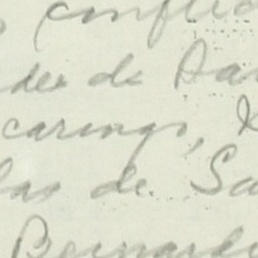 conflic
der de Da
caringo, X
las de Sa
Bernardo